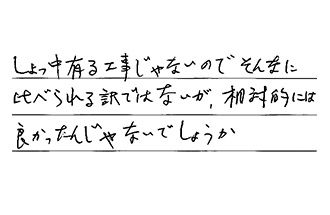 しょっ中有る工事じゃないのでそんなに
比べられる訳ではないが、相対的には
良かったんじゃないでしょうか